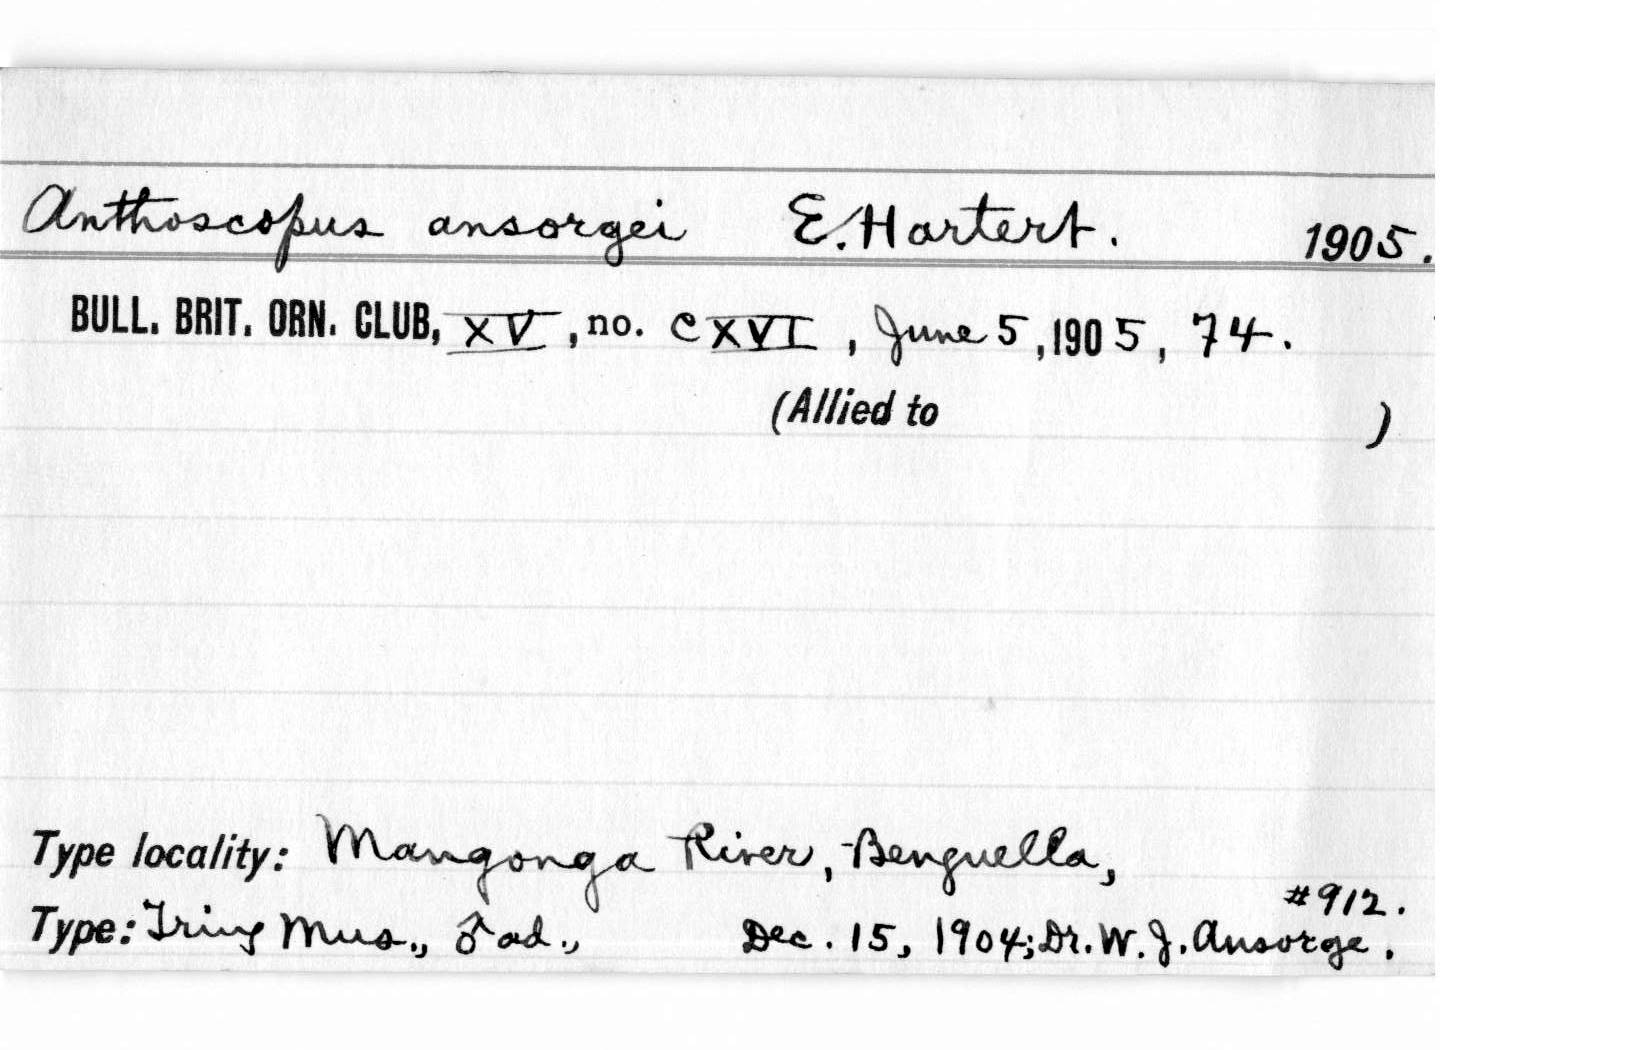 Anthoscopus ansorgei E. Hartert. 1905.
BULL. BRIT. ORN. CLUB, XV, no. CXVI, June 5, 1905, 74.
(Allied to )
Type locality: Mangonga River, Benguella,
#912.
Type: Tring Mus., ♂ ad., Dec. 15, 1904; Dr. W. J. Ansorge.